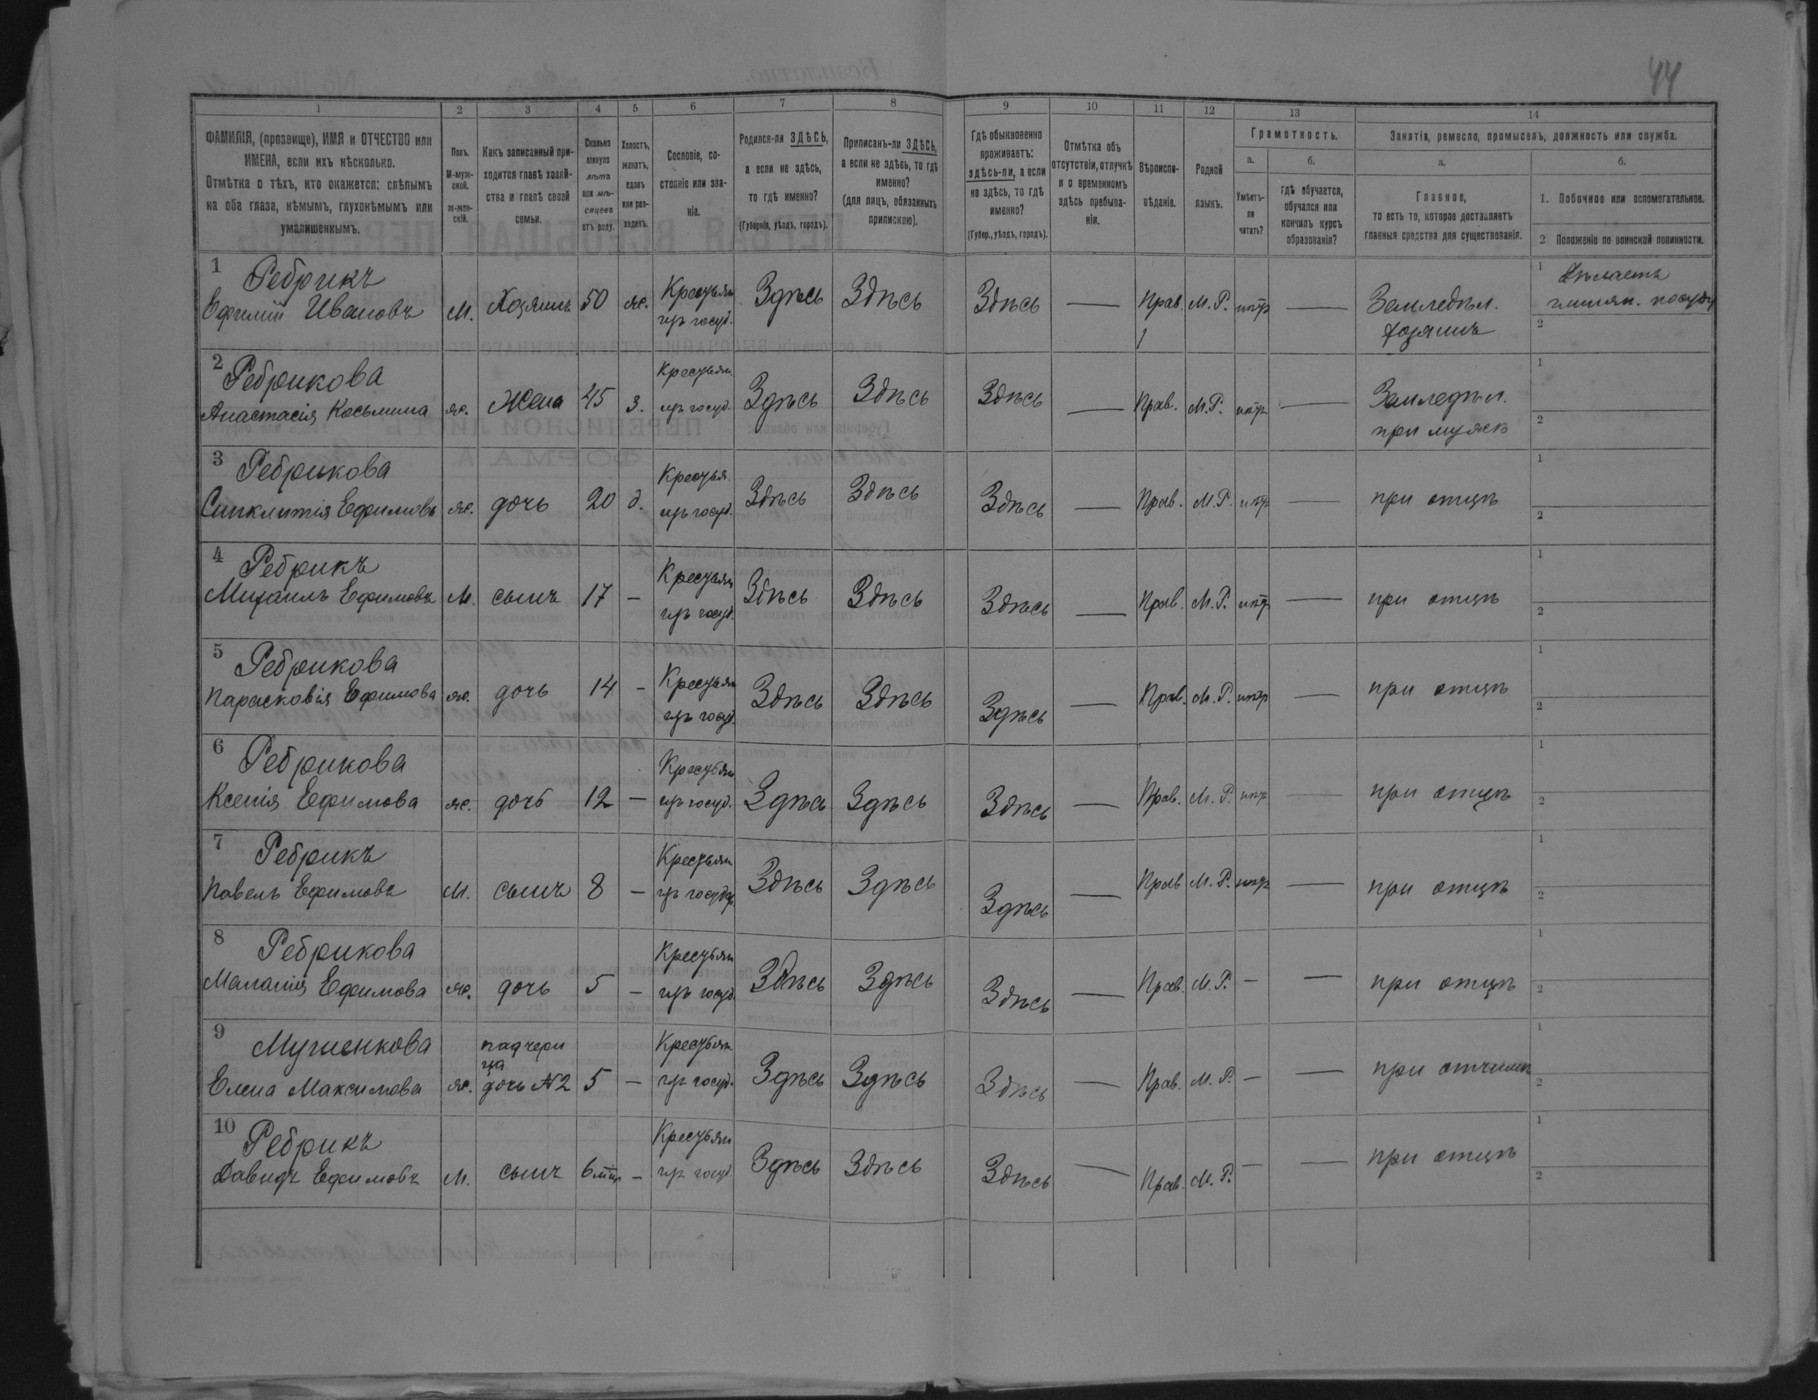 44
1 2 3 4 5 6 7 8 9 10 11 12 13 14
ФАМИЛІЯ, (прозвище), ИМЯ и ОТЧЕСТВО или
ИМЕНА, если ихъ нѣсколько.
Отмѣтка о тѣхъ, кто окажется: слѣпымъ
на оба глаза, нѣмымъ, глухонѣмымъ или
умалишеннымъ.
Полъ.
М-муж-
ской.
ж-жен-
скій.
Какъ записанный при-
ходится главѣ хозяй-
ства и главѣ своей
семьи.
Сколько
минуло
лѣтъ
или мѣ-
сяцевъ
отъ роду.
Холостъ,
женатъ,
вдовъ
или раз-
веденъ.
Сословіе, со-
стояніе или зва-
ніе.
Родился-ли ЗДѢСЬ,
а если не здѣсь,
то гдѣ именно?
(Губернія, уѣздъ, городъ).
Приписанъ-ли ЗДѢСЬ,
а если не здѣсь, то гдѣ
именно?
(для лицъ, обязанныхъ
припискою).
Гдѣ обыкновенно
проживаетъ:
здѣсь-ли, а если
не здѣсь, то гдѣ
именно?
(Губер., уѣздъ, городъ).
Отмѣтка объ
отсутствіи, отлучкѣ
и о временномъ
здѣсь пребыва-
ніи.
Вѣроиспо-
вѣданіе.
Родной
языкъ.
Грамотность.
а.
Умѣетъ-
ли
читать?
б.
гдѣ обучается,
обучался или
кончилъ курсъ
образованія?
Занятія, ремесло, промыселъ, должность или служба.
а.
Главное,
то есть то, которое доставляетъ
главныя средства для существованія.
б.
1. Побочное или вспомогательное.
2 Положеніе по воинской повинности.
1 Ребрикъ
Ефимій Ивановъ М. Хозяинъ 50 ж. Крестьян. изъ госуд. Здѣсь Здѣсь Здѣсь — Прав. М. Р. нѣтъ — Земледѣл. хозяинъ
1 Дѣлаетъ глинян. посуду
2
2 Ребрикова
Анастасія Косьмина ж. Жена 45 з. Крестьян. изъ госуд. Здѣсь Здѣсь Здѣсь — Прав. М. Р. нѣтъ — Земледѣл. при мужѣ
1
2
3 Ребрикова
Синклитія Ефимова ж. дочь 20 д. Крестья. изъ госуд. Здѣсь Здѣсь Здѣсь — Прав. М. Р. нѣтъ — при отцѣ
1
2
4 Ребрикъ
Михаилъ Ефимовъ М. сынъ 17 — Крестьян изъ госуд. Здѣсь Здѣсь Здѣсь — Прав. М. Р. нѣтъ — при отцѣ
1
2
5 Ребрикова
Парасковія Ефимова ж. дочь 14 — Крестьян изъ госуд. Здѣсь Здѣсь Здѣсь — Прав. М. Р. нѣтъ — при отцѣ
1
2
6 Ребрикова
Ксенія Ефимова ж. дочь 12 — Крестьян изъ госуд. Здѣсь Здѣсь Здѣсь — Прав. М. Р. нѣтъ — при отцѣ
1
2
7 Ребрикъ
Павелъ Ефимовъ М. сынъ 8 — Крестьян изъ госуд. Здѣсь Здѣсь Здѣсь — Прав М. Р. нѣтъ — при отцѣ
1
2
8 Ребрикова
Маланія Ефимова ж. дочь 5 — Крестьян изъ госуд. Здѣсь Здѣсь Здѣсь — Прав. М. Р. — — при отцѣ
1
2
9
Елена Максимова ж. падчерица дочь №2 5 — Крестьян. изъ госуд. Здѣсь Здѣсь Здѣсь — Прав. М. Р. — — при отчимѣ
1
2
10 Ребрикъ
Давидъ Ефимовъ М. сынъ 6 мѣс. — Крестьян изъ госуд. Здѣсь Здѣсь Здѣсь — Прав. М. Р. — — при отцѣ
1
2